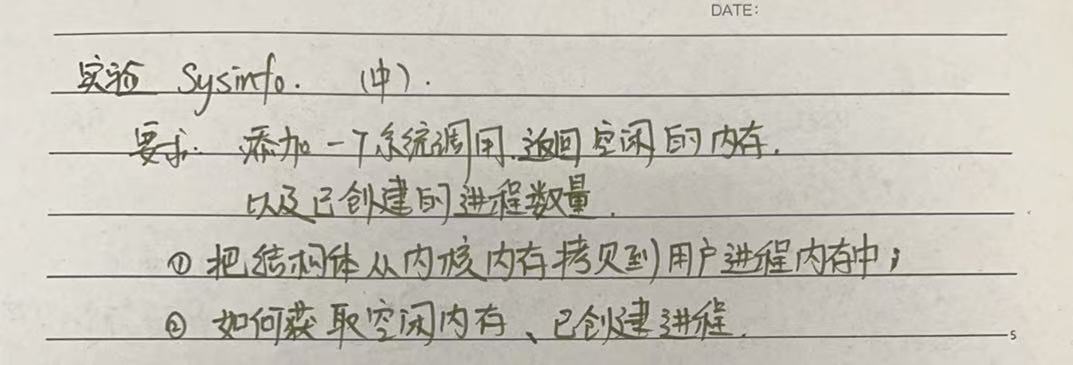 DATE:
实验 Sysinfo. (中).
要求: 添加一个系统调用.返回空闲的内存.
以及已创建的进程数量.
① 把结构体从内核内存拷贝到用户进程内存中;
② 如何获取空闲内存、已创建进程.
5